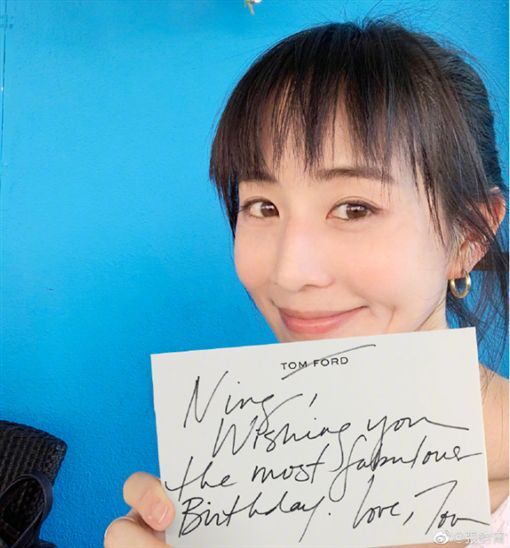 TOM FORD
Ning,
Wishing you
the most fabulous
Birthday. Love, Tom